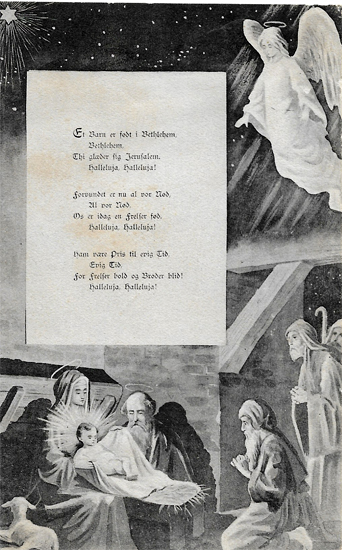 Et Barn er født i Bethlehem,
Bethlehem.
Thi glæder sig Jerusalem.
Halleluja, Halleluja!
Forvundet er nu al vor Nød,
Al vor Nød.
Os er idag en Frelser fød.
Halleluja, Halleluja!
Ham være Pris til evig Tid,
Evig Tid.
For Frelser bold og Broder blid!
Halleluja, Halleluja!